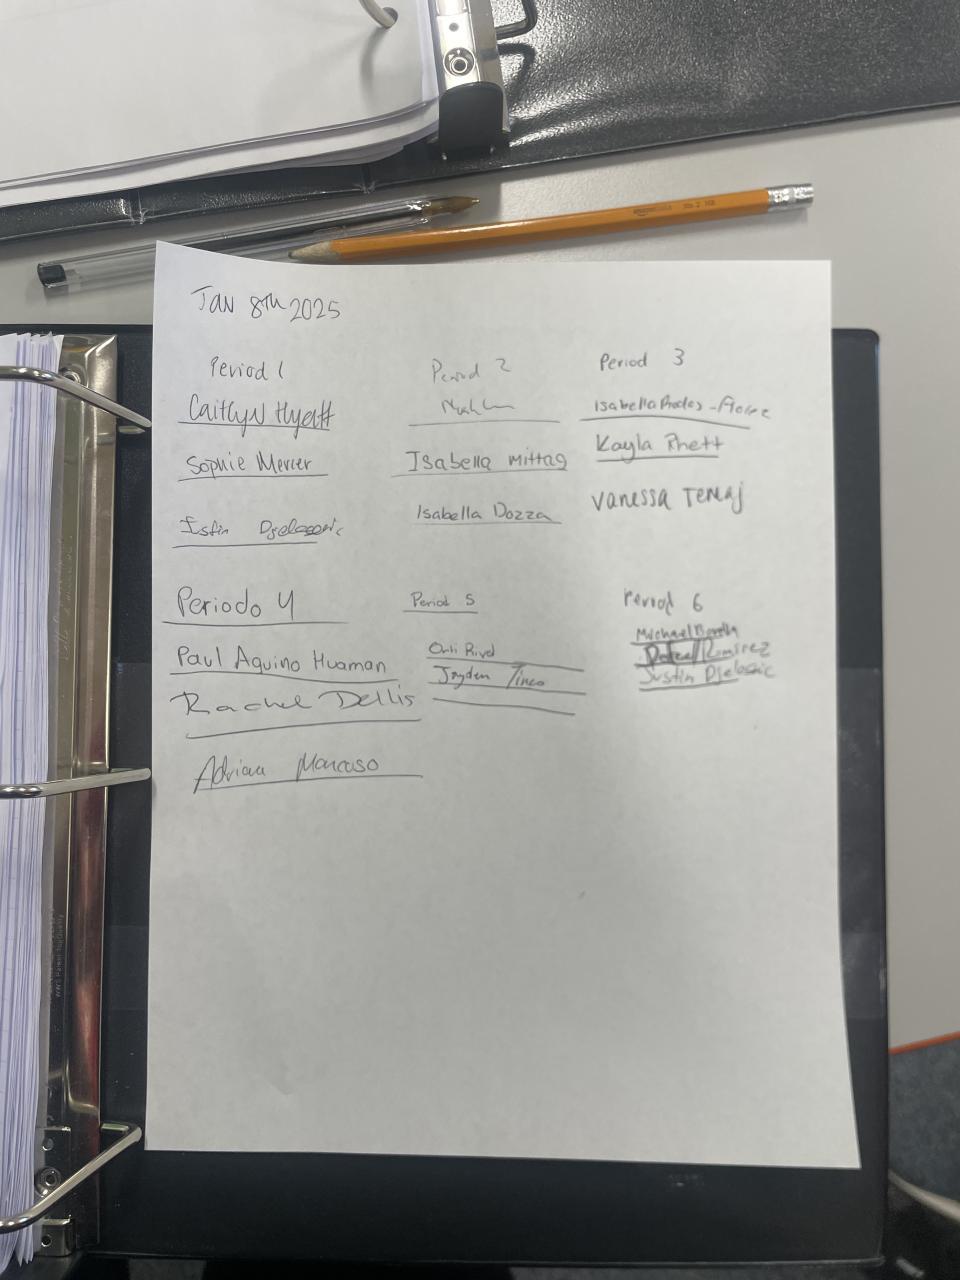 Jan 8th 2025
Period 1
Caitlyn Hyatt
Sophie Mercer
Period 2
Isabella Mittag
Isabella Dozza
Period 3
Isabella
Kayla Rhett
Vanessa Temaj
Periodo 4
Paul Aquino Huaman
Rachel Dellis
Adriana Mancuso
Period 5
Jayden Tineo
Period 6
Michael
Ramirez
Justin Djelosevic